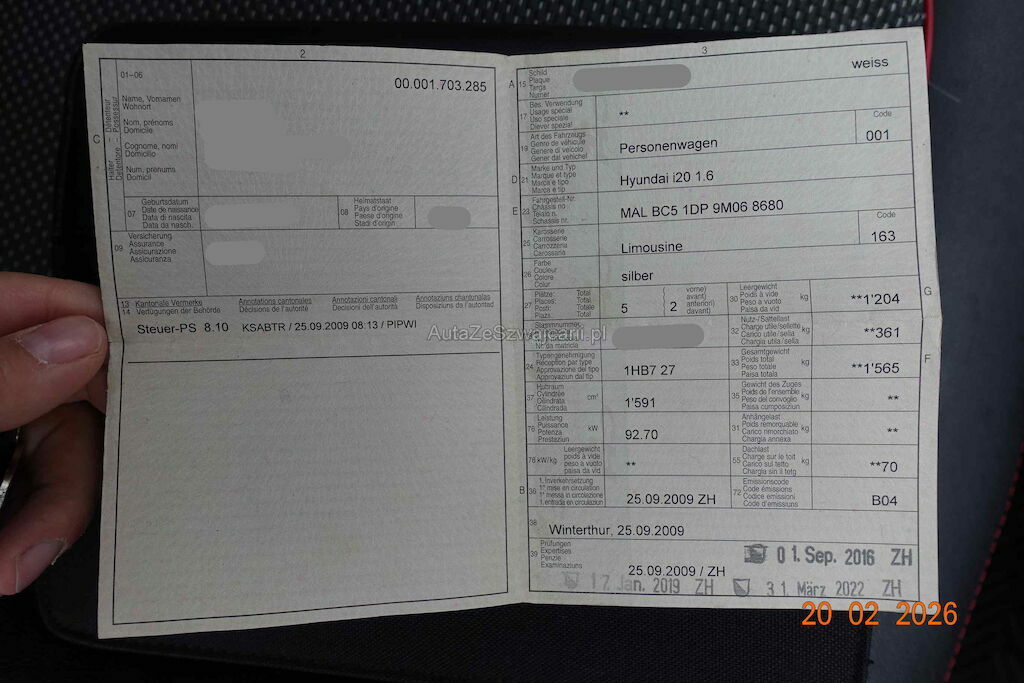 2
01–06
00.001.703.285
C
Halter
Détenteur
Detentore
Possessur
Name, Vornamen
Wohnort
Nom, prénoms
Domicile
Cognome, nomi
Domicilio
Num, prenums
Domicil
07
Geburtsdatum
Date de naissance
Data di nascita
Data da nasch.
08
Heimatstaat
Pays d'origine
Paese d'origine
Stadi d'origin
09
Versicherung
Assurance
Assicurazione
Assicuranza
13
14
Kantonale Vermerke
Verfügungen der Behörde
Annotations cantonales
Décisions de l'autorité
Annotazioni cantonali
Decisioni dell'autorità
Annotaziuns chantunalas
Disposiziuns da l'autoritad
Steuer-PS 8.10 KSABTR / 25.09.2009 08:13 / PIPWI
3
A 15
Schild
Plaque
Targa
Numer
weiss
17
Bes. Verwendung
Usage spécial
Uso speciale
Diever spezial
**
19
Art des Fahrzeugs
Genre de véhicule
Genere di veicolo
Gener dal vehichel
Personenwagen
Code
001
D 21
Marke und Typ
Marque et type
Marca e tipo
Marca e tip
Hyundai i20 1.6
E 23
Fahrgestell-Nr.
Châssis no
Telaio n.
Schassis nr.
MAL BC5 1DP 9M06 8680
25
Karosserie
Carrosserie
Carrozzeria
Carossaria
Limousine
Code
163
26
Farbe
Couleur
Colore
Colur
silber
27
Plätze: Total
Places: Total
Posti: Totale
Plazs: Total
5
vorne)
avant)
anteriori)
davant)
2
30
Leergewicht
Poids à vide
Peso a vuoto
Paisa da vid
kg
**1'204
G
Stammnummer
No matricule
Nr. da matricla
32
Nutz-/Sattellast
Charge utile/sellette
Carico utile/sella
Chargia utila/sella
kg
**361
24
Typengenehmigung
Réception par type
Approvazione del tipo
Approvaziun dal tip
1HB7 27
33
Gesamtgewicht
Poids total
Peso totale
Paisa totala
kg
**1'565
F
37
Hubraum
Cylindrée
Cilindrata
Cilindrada
cm³
1'591
35
Gewicht des Zuges
Poids de l'ensemble
Peso del convoglio
Paisa cumposiziun
kg
**
76
Leistung
Puissance
Potenza
Prestaziun
kW
92.70
31
Anhängelast
Poids remorquable
Carico rimorchiato
Chargia annexa
kg
**
78 kW/kg
Leergewicht
poids à vide
peso a vuoto
paisa da vid
**
55
Dachlast
Charge sur le toit
Carico sul tetto
Chargia sin il tetg
kg
**70
B 36
1. Inverkehrsetzung
1re mise en circulation
1a messa in circolazione
1. entrada en circulaziun
25.09.2009 ZH
72
Emissionscode
Code émissions
Codice emissioni
Code d'emissiuns
B04
38
Winterthur, 25.09.2009
39
Prüfungen
Expertises
Perizie
Examinaziuns
25.09.2009 / ZH
0 1. Sep. 2016 ZH
1 7. Jan. 2019 ZH
3 1. März 2022 ZH
AutaZeSzwajcarii.pl
20 02 2026